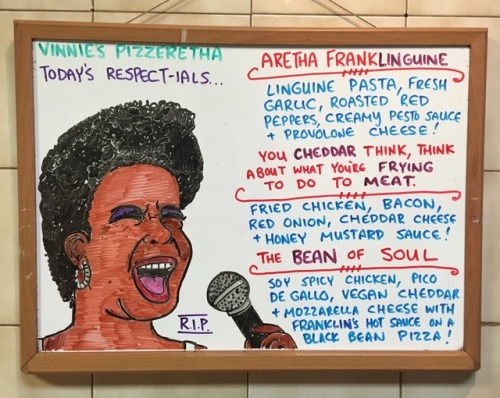 VINNIE'S PIZZERETHA
TODAY'S RESPECT-IALS...
ARETHA FRANKLINGUINE
LINGUINE PASTA, FRESH
GARLIC, ROASTED RED
PEPPERS, CREAMY PESTO SAUCE
+ PROVOLONE CHEESE!
YOU CHEDDAR THINK, THINK
ABOUT WHAT YOU'RE FRYING
TO DO TO MEAT.
FRIED CHICKEN, BACON,
RED ONION, CHEDDAR CHEESE
+ HONEY MUSTARD SAUCE!
THE BEAN OF SOUL
SOY SPICY CHICKEN, PICO
DE GALLO, VEGAN CHEDDAR
+ MOZZARELLA CHEESE WITH
FRANKLIN'S HOT SAUCE ON A
BLACK BEAN PIZZA!
R.I.P.